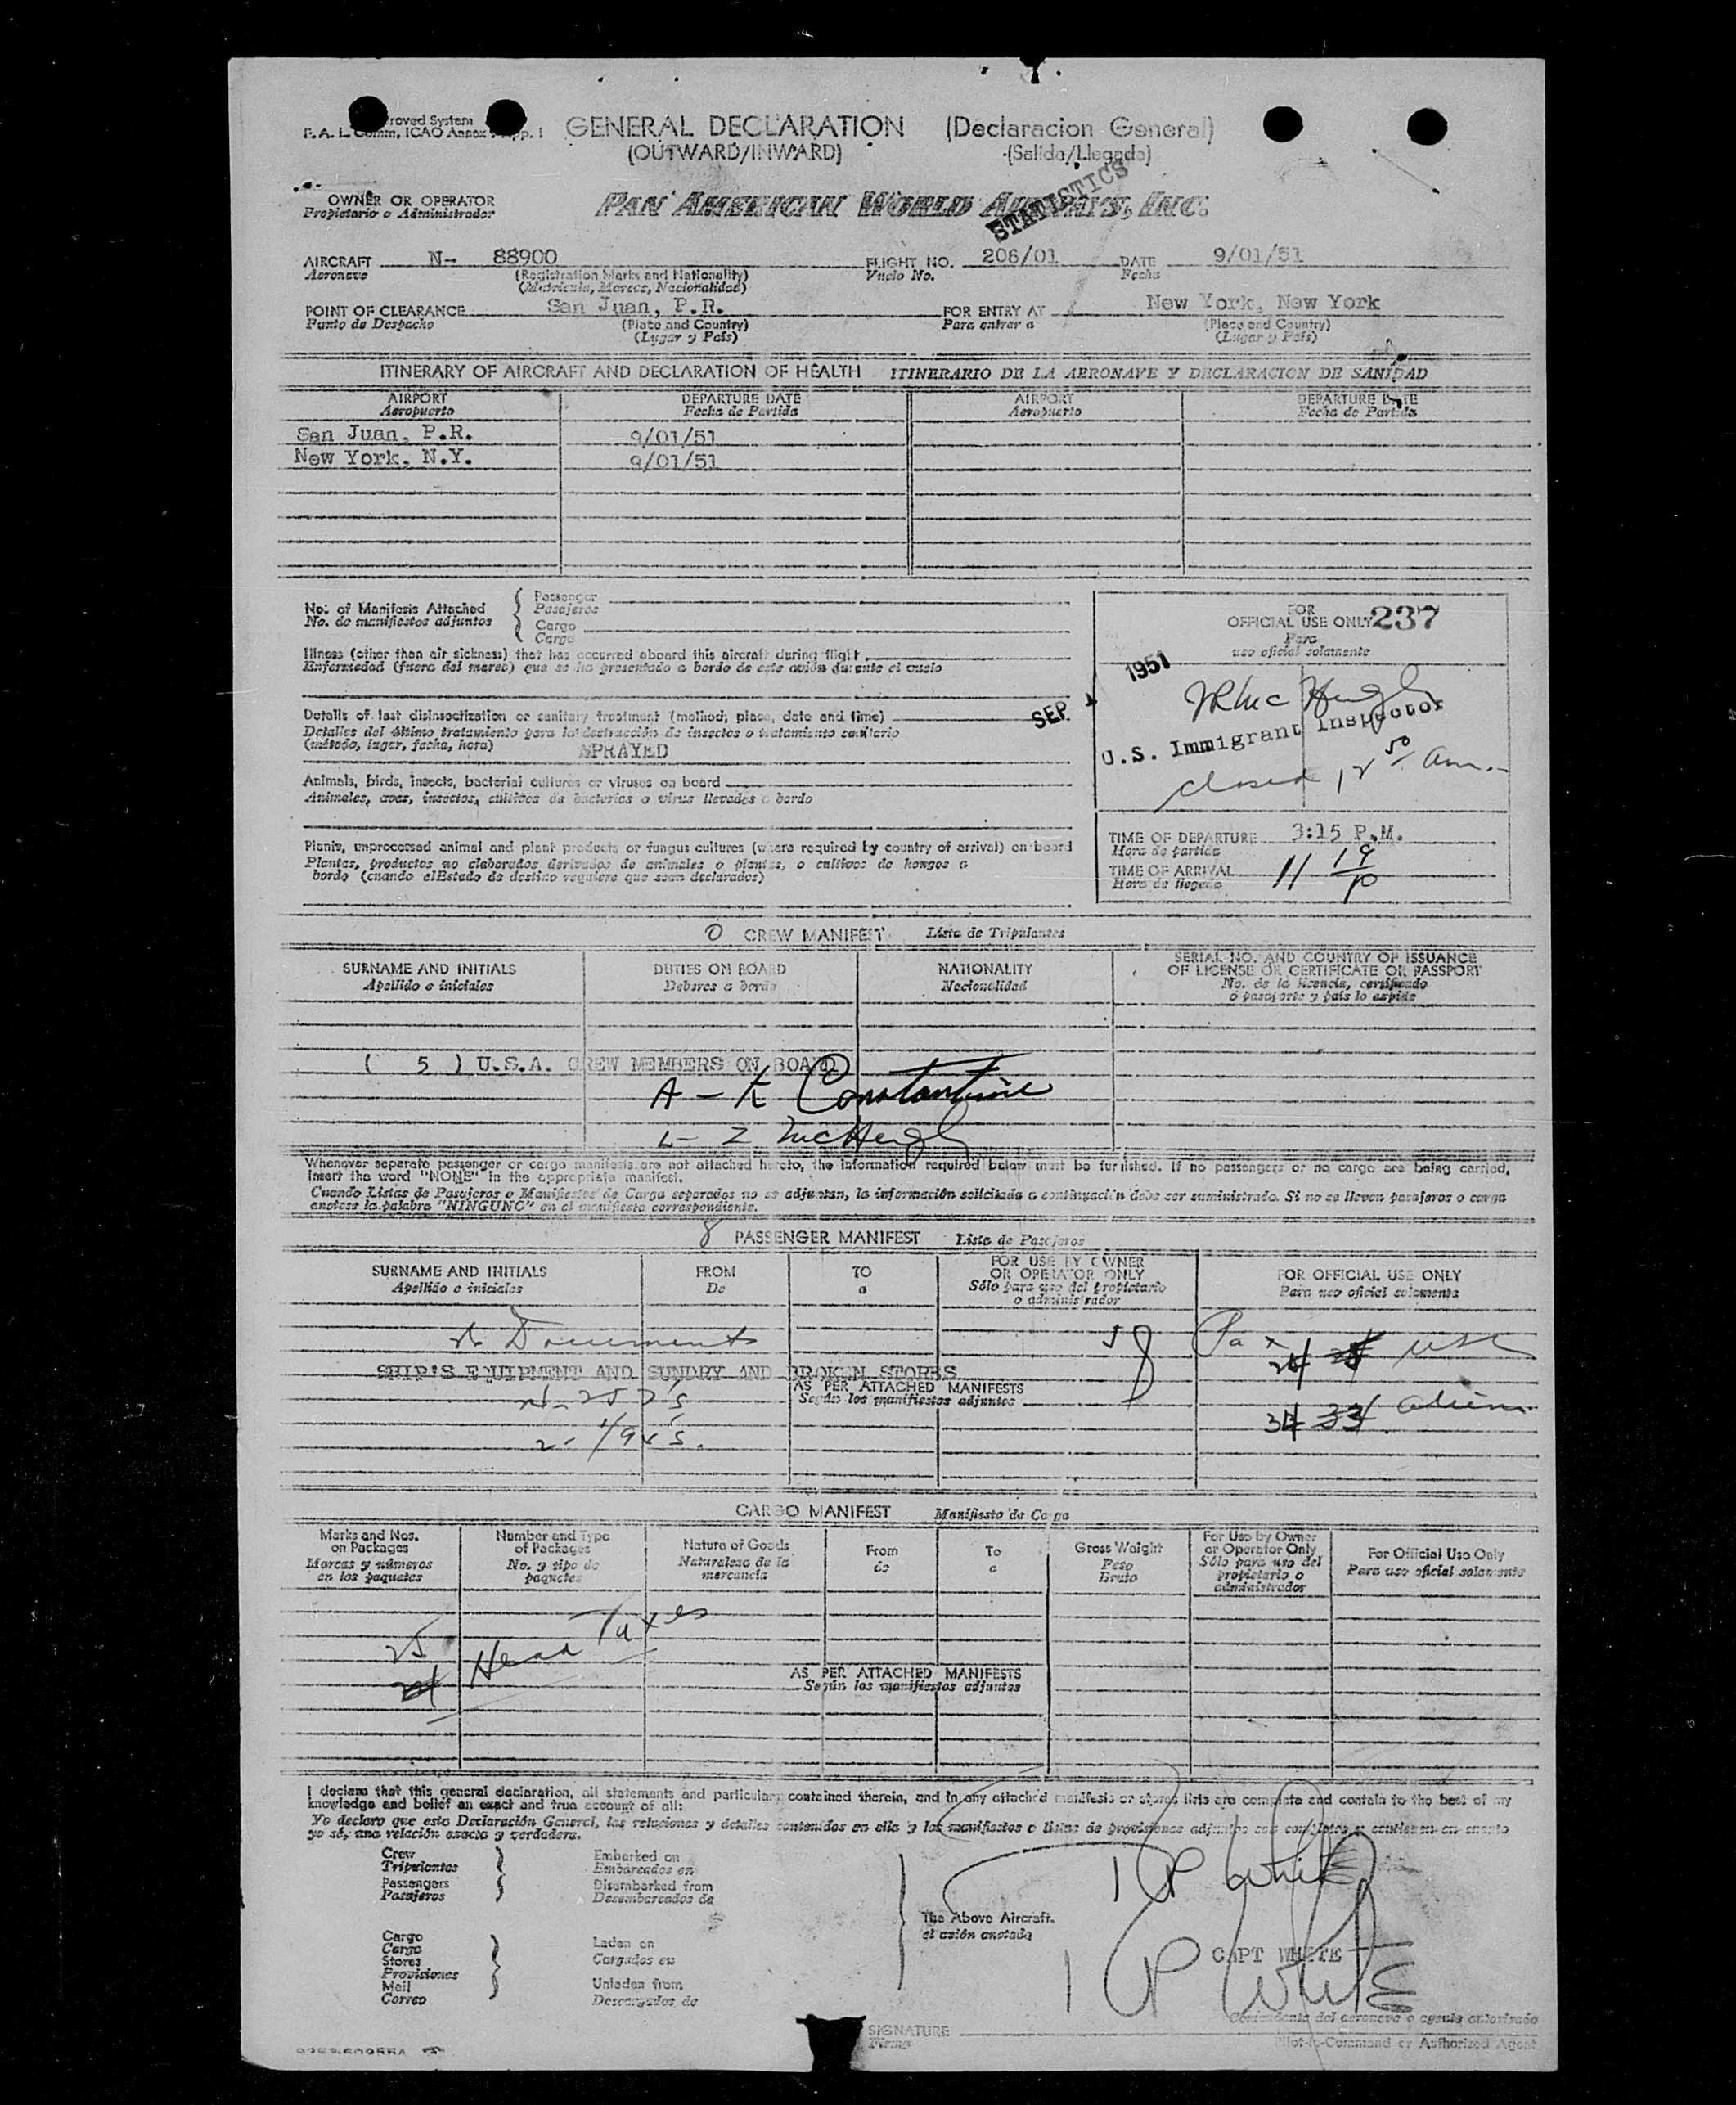 roved System
F. A. L. Comm, ICAO Annex App. I
GENERAL DECLARATION (Declaracion General)
(OUTWARD/INWARD) (Salida/Llegada)
STATISTICS
OWNER OR OPERATOR PAN AMERICAN WORLD AIRWAYS, INC.
Propietario o Administrador
AIRCRAFT N- 88900 FLIGHT NO. 206/01 DATE 9/01/51
Aeronave (Registration Marks and Nationality) Vuelo No. Fecha
(Matricula, Marcas, Nacionalidad)
POINT OF CLEARANCE San Juan, P.R. FOR ENTRY AT New York, New York
Punto de Despacho (Place and Country) Para entrar a (Place and Country)
(Lugar y País) (Lugar y País)
ITINERARY OF AIRCRAFT AND DECLARATION OF HEALTH ITINERARIO DE LA AERONAVE Y DECLARACION DE SANIDAD
AIRPORT DEPARTURE DATE AIRPORT DEPARTURE DATE
Aeropuerto Fecha de Partida Aeropuerto Fecha de Partida
San Juan, P.R. 9/01/51
New York, N.Y. 9/01/51
No. of Manifests Attached Passenger
No. de manifiestos adjuntos Pasajeros
Cargo
Carga
Illness (other than air sickness) that has occurred aboard this aircraft during flight
Enfermedad (fuera del mareo) que se ha presentado a bordo de este avión durante el vuelo
Details of last disinsectization or sanitary treatment (method, place, date and time)
Detalles del último tratamiento para la destrucción de insectos o tratamiento sanitario
(método, lugar, fecha, hora) SPRAYED
Animals, birds, insects, bacterial cultures or viruses on board
Animales, aves, insectos, cultivos de bacterias o virus llevados a bordo
Plants, unprocessed animal and plant products or fungus cultures (where required by country of arrival) on board
Plantas, productos no elaborados derivados de animales o plantas, o cultivos de hongos a
bordo (cuando el Estado de destino requiere que sean declarados)
FOR
OFFICIAL USE ONLY 237
Para
uso oficial solamente
SEP 1 1951
McHugh
U.S. Immigrant Inspector
closed 12 50 am.
TIME OF DEPARTURE 3:15 P.M.
Hora de partida
TIME OF ARRIVAL 11 19 P
Hora de llegada
0 CREW MANIFEST Lista de Tripulantes
SURNAME AND INITIALS DUTIES ON BOARD NATIONALITY SERIAL NO. AND COUNTRY OF ISSUANCE
OF LICENSE OR CERTIFICATE OR PASSPORT
Apellido e iniciales Deberes a bordo Nacionalidad No. de la licencia, certificado
o pasaporte y país lo expide
( 5 ) U.S.A. CREW MEMBERS ON BOARD
A - K Constantine
L - Z McHugh
Whenever separate passenger or cargo manifests are not attached hereto, the information required below must be furnished. If no passengers or no cargo are being carried,
insert the word "NONE" in the appropriate manifest.
Cuando Listas de Pasajeros o Manifiestos de Carga separados no se adjuntan, la información solicitada a continuación debe ser suministrada. Si no se llevan pasajeros o carga
anotese la palabra "NINGUNO" en el manifiesto correspondiente.
8 PASSENGER MANIFEST Lista de Pasajeros
SURNAME AND INITIALS FROM TO FOR USE BY OWNER
OR OPERATOR ONLY FOR OFFICIAL USE ONLY
Apellido e iniciales De a Sólo para uso del propietario
o administrador Para uso oficial solamente
Documents 58 Pax
24 USC
SHIP'S EQUIPMENT AND SUNDRY AND BROKEN STORES
AS PER ATTACHED MANIFESTS
Según los manifiestos adjuntos
34 33 Aliens
CARGO MANIFEST Manifiesto de Carga
Marks and Nos.
on Packages
Marcas y números
en los paquetes
Number and Type
of Packages
No. y tipo de
paquetes
Nature of Goods
Naturaleza de la
mercancia
From
de
To
a
Gross Weight
Peso
Bruto
For Use by Owner
or Operator Only
Sólo para uso del
propietario o
administrador
For Official Use Only
Para uso oficial solamente
25 Head Taxes
AS PER ATTACHED MANIFESTS
Según los manifiestos adjuntos
I declare that this general declaration, all statements and particulars contained therein, and in any attached manifests or stores lists are complete and contain to the best of my
knowledge and belief an exact and true account of all:
Yo declaro que esta Declaración General, las relaciones y detalles contenidos en ella y los manifiestos o listas de provisiones adjuntos son completos y contienen en cuanto
yo sé, una relación exacta y verdadera.
Crew Embarked on
Tripulantes Embarcados en
Passengers Disembarked from
Pasajeros Desembarcados de
The Above Aircraft.
el avión anotado
Cargo Laden on
Carga Cargados en
Stores
Provisiones
Mail Unladen from
Correo Descargados de
P White
CAPT WHITE
P White
Comandante del aeronave o agente autorizado
SIGNATURE
Firma
Pilot-in-Command or Authorized Agent